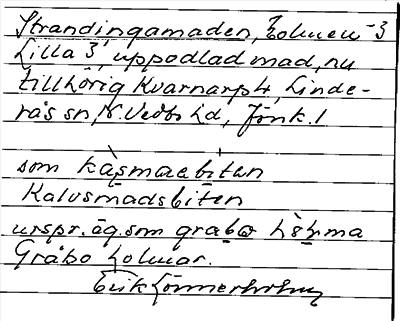 Strandingamaden, Holmen-3
Lilla 3, uppodlad mad, nu
tillhörig Kvarnarp 4, Linde-
rås sn, N. Vedbo hd, Jönk. l
som
Kalvsmadsbiten
urspr. äg. som
Gråbo holmar.
Erik Lönnerholm